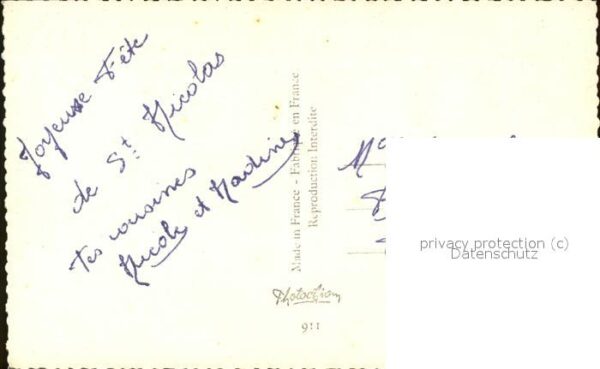 Joyeuse Fête
de St Nicolas
tes cousines
Nicole et Martine
Made in France - Fabriqué en France
Reproduction Interdite
Photochrom
911
privacy protection (c)
Datenschutz